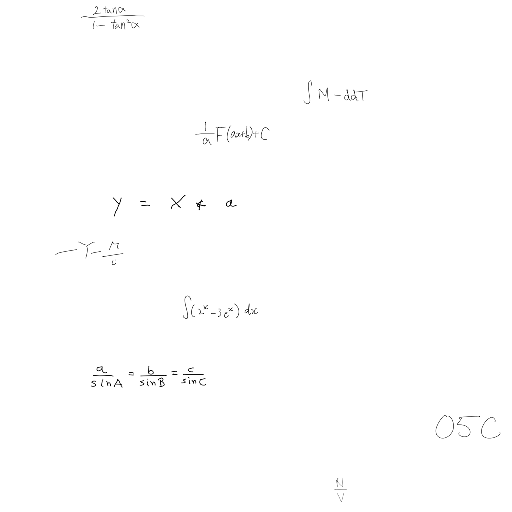 \frac{2 \tan \alpha}{1 - \tan^2 \alpha}
\int M - ddT
\frac{1}{a} F(ax+b) + C
y = x * a
\int (x^x - 3e^x) dx
\frac{a}{\sin A} = \frac{b}{\sin B} = \frac{c}{\sin C}
05C
\frac{N}{V}